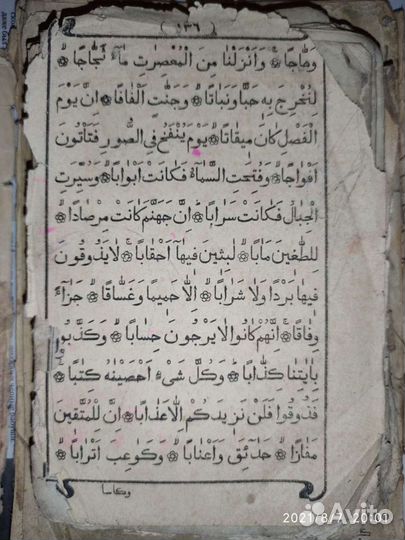 ٦٣٦
وَهَّاجًا ۞ وَاَنْزَلْنَا مِنَ الْمُعْصِرٰتِ مَآءً ثَجَّاجًا ۞
لِنُخْرِجَ بِهٖ حَبًّا وَنَبَاتًا ۞ وَجَنّٰتٍ اَلْفَافًا ۞ اِنَّ يَوْمَ
الْفَصْلِ كَانَ مِيقَاتًا ۞ يَوْمَ يُنْفَخُ فِى الصُّورِ فَتَاْتُونَ
اَفْوَاجًا ۞ وَفُتِحَتِ السَّمَآءُ فَكَانَتْ اَبْوَابًا ۞ وَسُيِّرَتِ
الْجِبَالُ فَكَانَتْ سَرَابًا ۞ اِنَّ جَهَنَّمَ كَانَتْ مِرْصَادًا ۞
لِلطّٰغِينَ مَاٰبًا ۞ لٰبِثِينَ فِيهَآ اَحْقَابًا ۞ لَا يَذُوقُونَ
فِيهَا بَرْدًا وَلَا شَرَابًا ۞ اِلَّا حَمِيمًا وَغَسَّاقًا ۞ جَزَآءً
وِفَاقًا ۞ اِنَّهُمْ كَانُوا لَا يَرْجُونَ حِسَابًا ۞ وَكَذَّبُو
بِاٰيٰتِنَا كِذَّابًا ۞ وَكُلَّ شَىْءٍ اَحْصَيْنٰهُ كِتٰبًا ۞
فَذُوقُوا فَلَنْ نَزِيدَكُمْ اِلَّا عَذَابًا ۞ اِنَّ لِلْمُتَّقِينَ
مَفَازًا ۞ حَدَآئِقَ وَاَعْنَابًا ۞ وَكَوَاعِبَ اَتْرَابًا ۞
وكاسا
2021/8/7 20:01
Avito